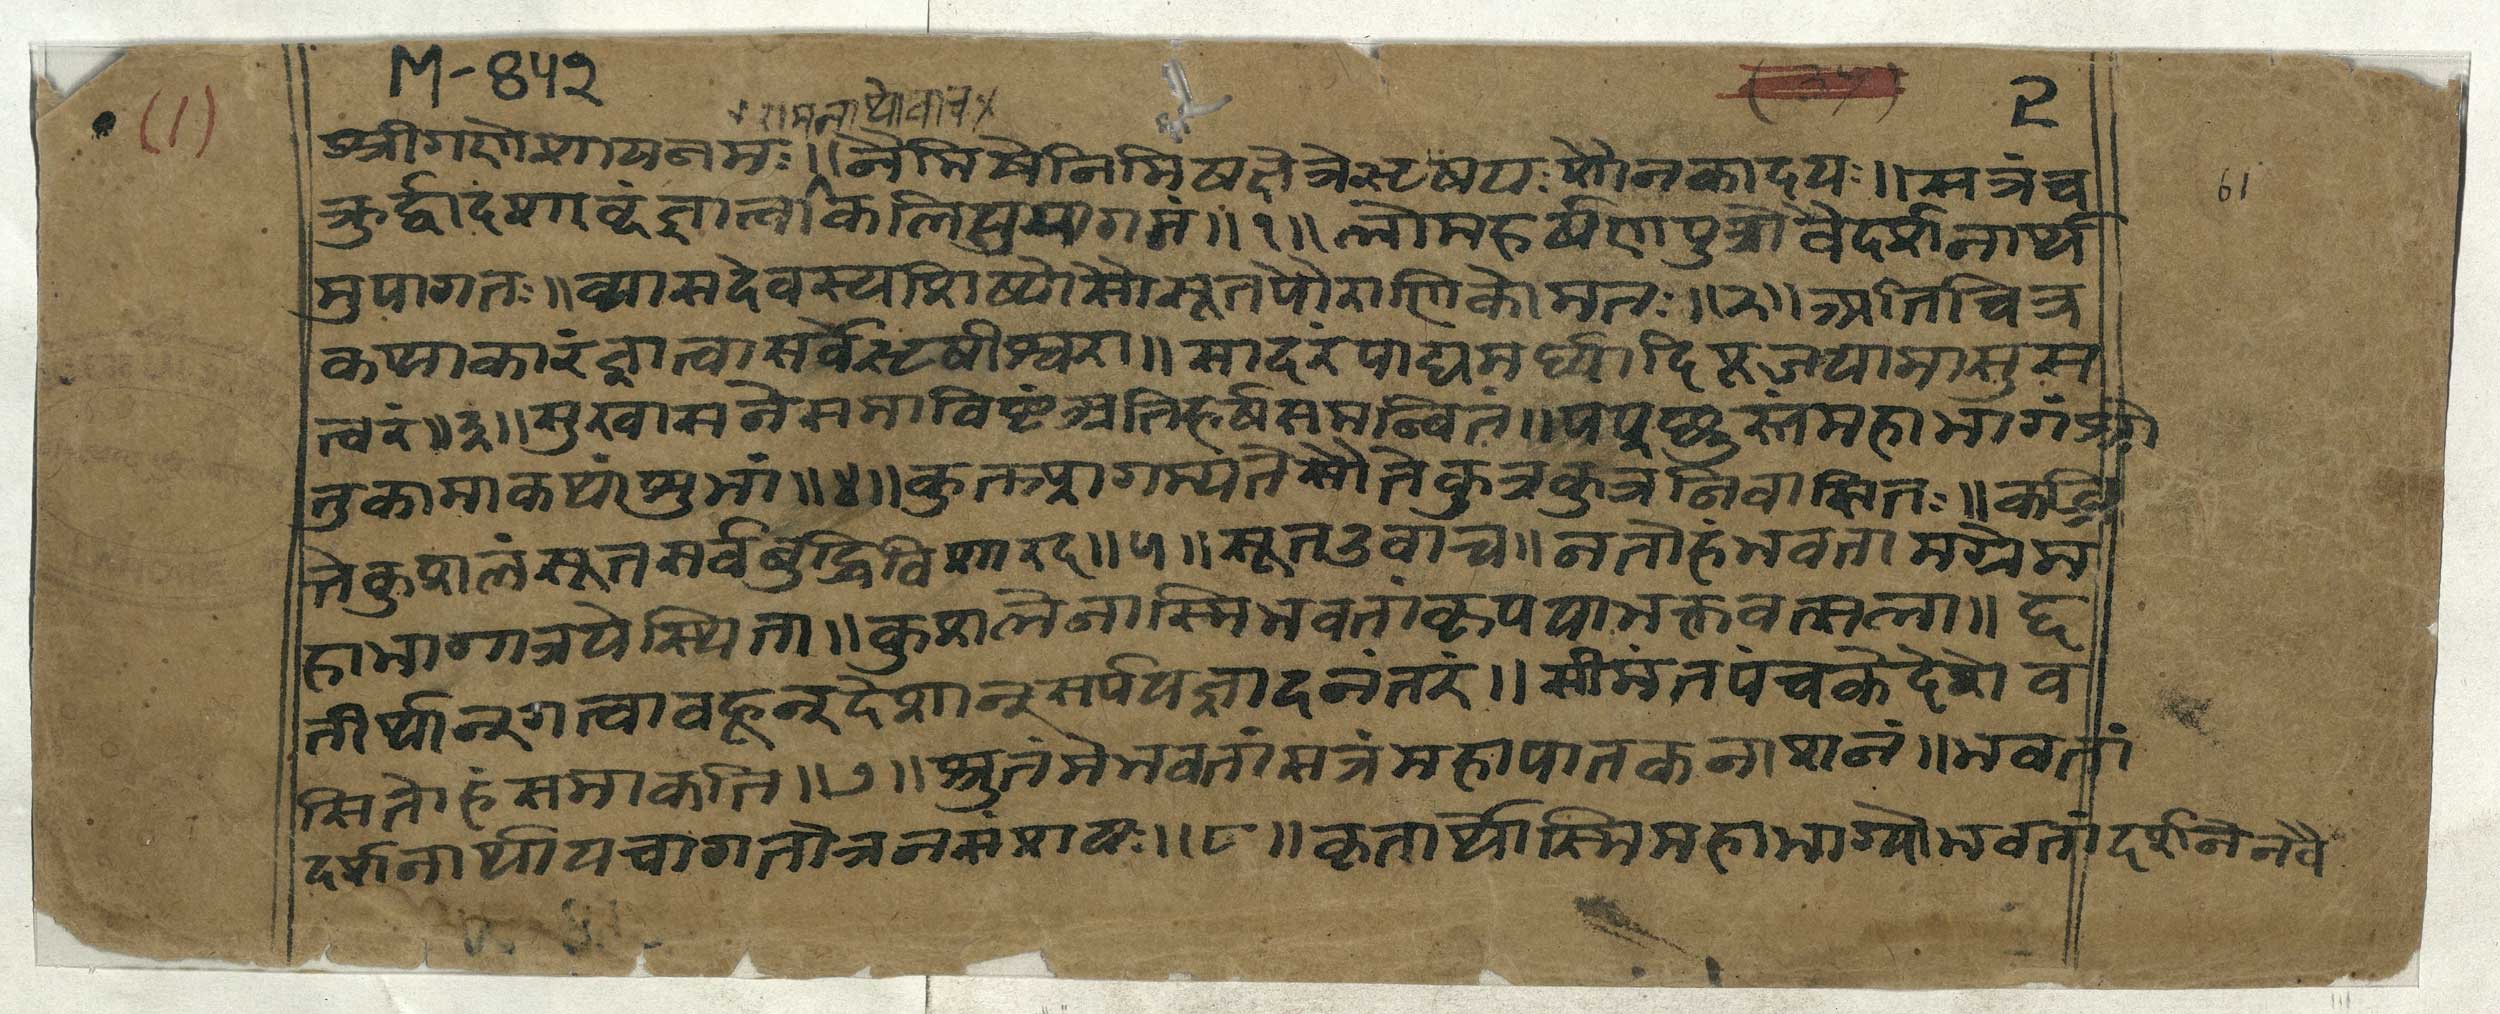 M-८५२
रामनाथोवाच
(1)
२
61
श्रीगणेशायनमः॥ नैमिषेनिमिषक्षेत्रेऋषयः शौनकादयः॥ सत्रंच
क्रुर्द्वादशाव्दंज्ञात्वाकलिमुपागमं॥१॥ लोमहर्षणपुत्रोवैदर्शनार्थ
मुपागतः॥ व्यासदेवस्यशिष्योसोसूतपौराणिकोमतः॥२॥ अतिचित्र
कथाकारंज्ञात्वासर्वेऋषीश्वरा॥ सादरंपाद्यमर्घ्यादिपूजयामासुस
त्वरं॥३॥ सुखासनेसमाविष्टंअतिहर्षसमन्वितं॥ पप्रच्छुस्तंमहाभागंश्रो
तुकामाकथांशुभां॥४॥ कुतश्चागम्यतेसौतेकुत्रकुत्रनिवासितः॥ कच्चि
तेकुशलंसूतसर्वबुद्धिविशारद॥५॥ सूतउवाच॥ नतोहंभवतामग्रेम
हाभागात्रयेस्थिता॥ कुशलेनास्मिभवतांकृपयाभक्तवत्सला॥६
तीर्थान्गत्वावहून्देशान्सर्पयज्ञादनंतरं॥ सीमंतपंचकेदेशेव
सितोहंसमाकति॥७॥ श्रुतंमेभवतांसत्रंमहापातकनाशनं॥ भवतां
दर्शनार्थायचागतोत्रनसंशयः॥८॥ कृतार्थोस्मिमहाभाग्योभवतांदर्शनेनवै